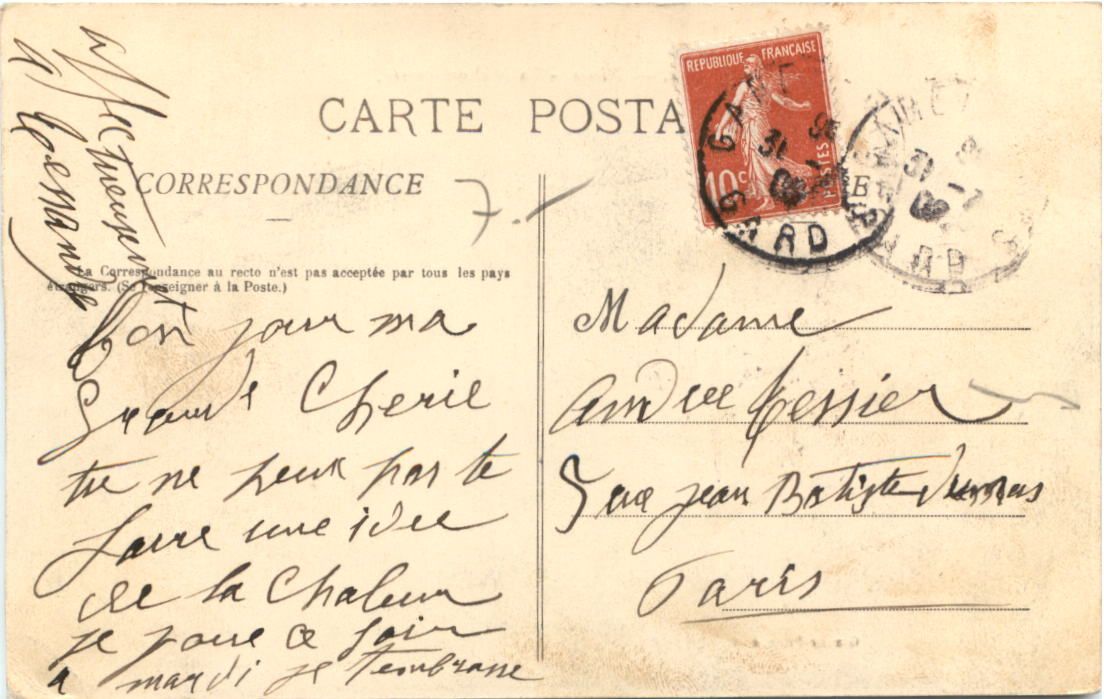 CARTE POSTA
CORRESPONDANCE
La Correspondance au recto n'est pas acceptée par tous les pays
étrangers. (Se renseigner à la Poste.)
REPUBLIQUE FRANÇAISE
10c
POSTES
GARD
31
GARD
31
Bon jour ma
Grande Cherie
tu ne peux pas te
faire une idee
de la Chaleur
je pars ce soir
a mardi je t'embrasse
affectueusement
Madame
andree Tessier
5 rue jean Batiste dumas
Paris